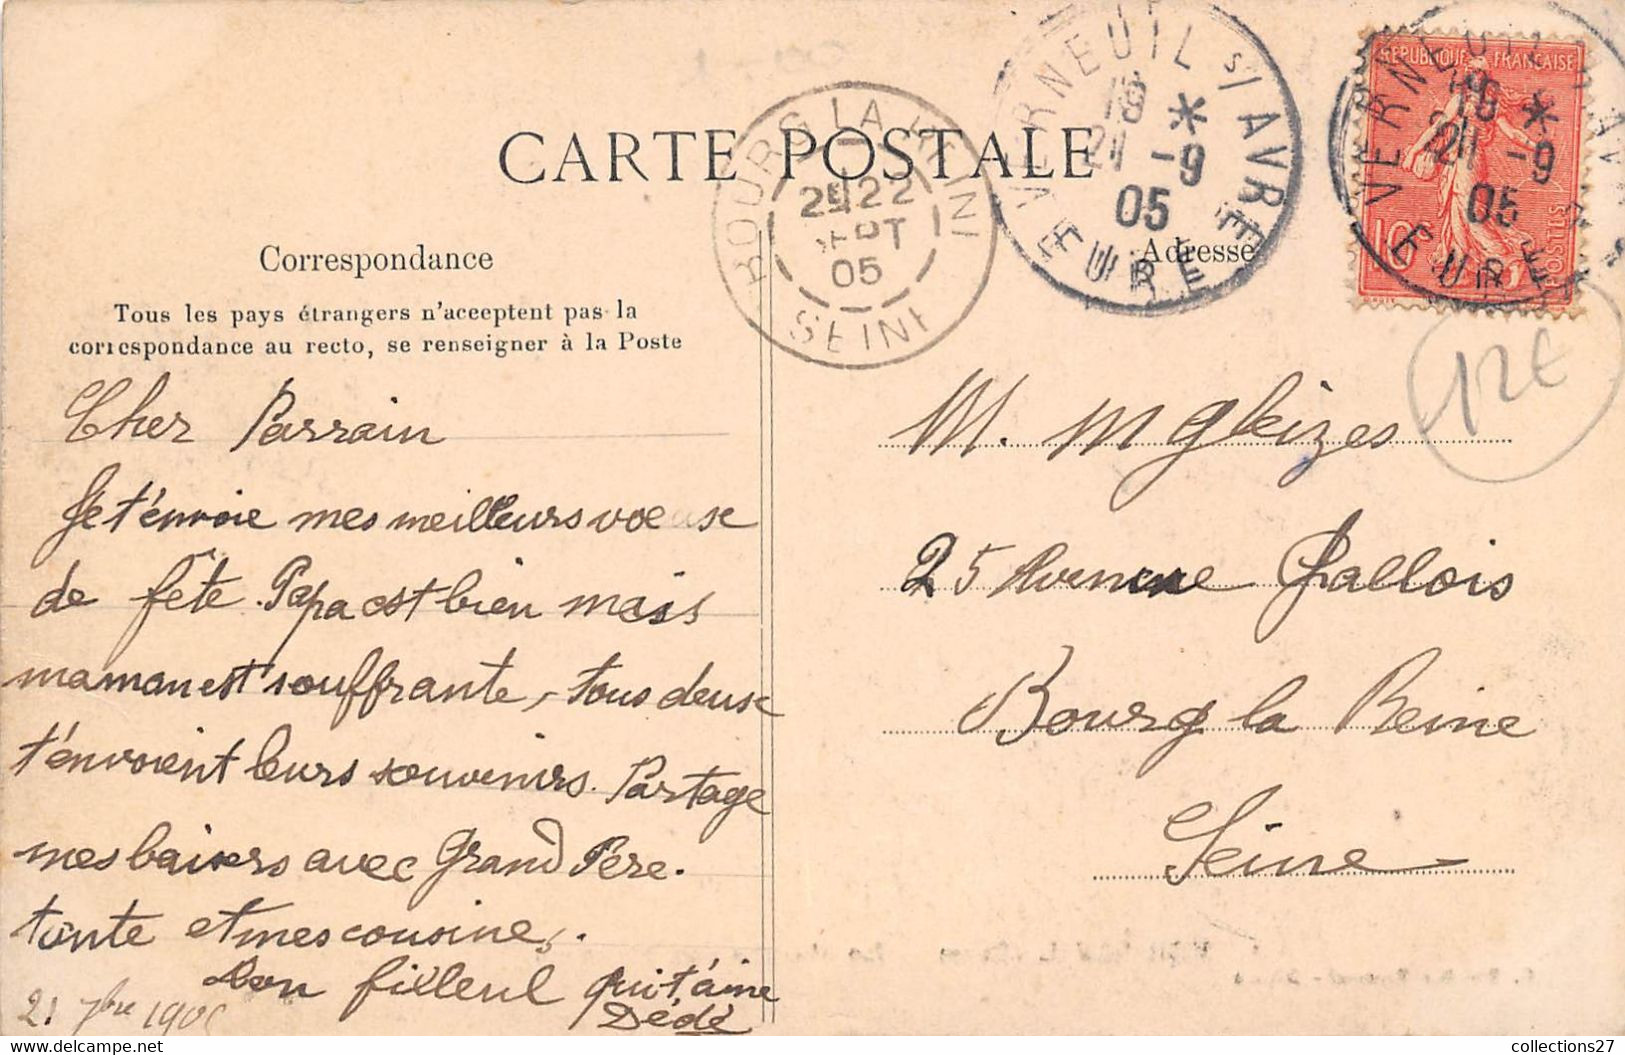 CARTE POSTALE
BOURG LA REINE
22
SEPT
05
SEINE
VERNEUIL S/ AVRE
18 *
21 -9
05
EURE
VERNEUIL S/ AVRE
* 
21 -9
05
EURE
REPUBLIQUE FRANÇAISE
10
POSTES
12€
Correspondance
Tous les pays étrangers n'acceptent pas la
correspondance au recto, se renseigner à la Poste
Cher Parrain
Je t'envoie mes meilleurs voeuse
de fête. Papa est bien mais
maman est souffrante, tous deuse
t'envoient leurs souvenirs. Partage
mes baisers avec Grand Père.
tante et mes cousines.
Ton filleul qui t'aime
Dédé
21 7bre 190
Adresse
M. M Gleizes
25 Avenue Gallois
Bourg la Reine
Seine
collections27